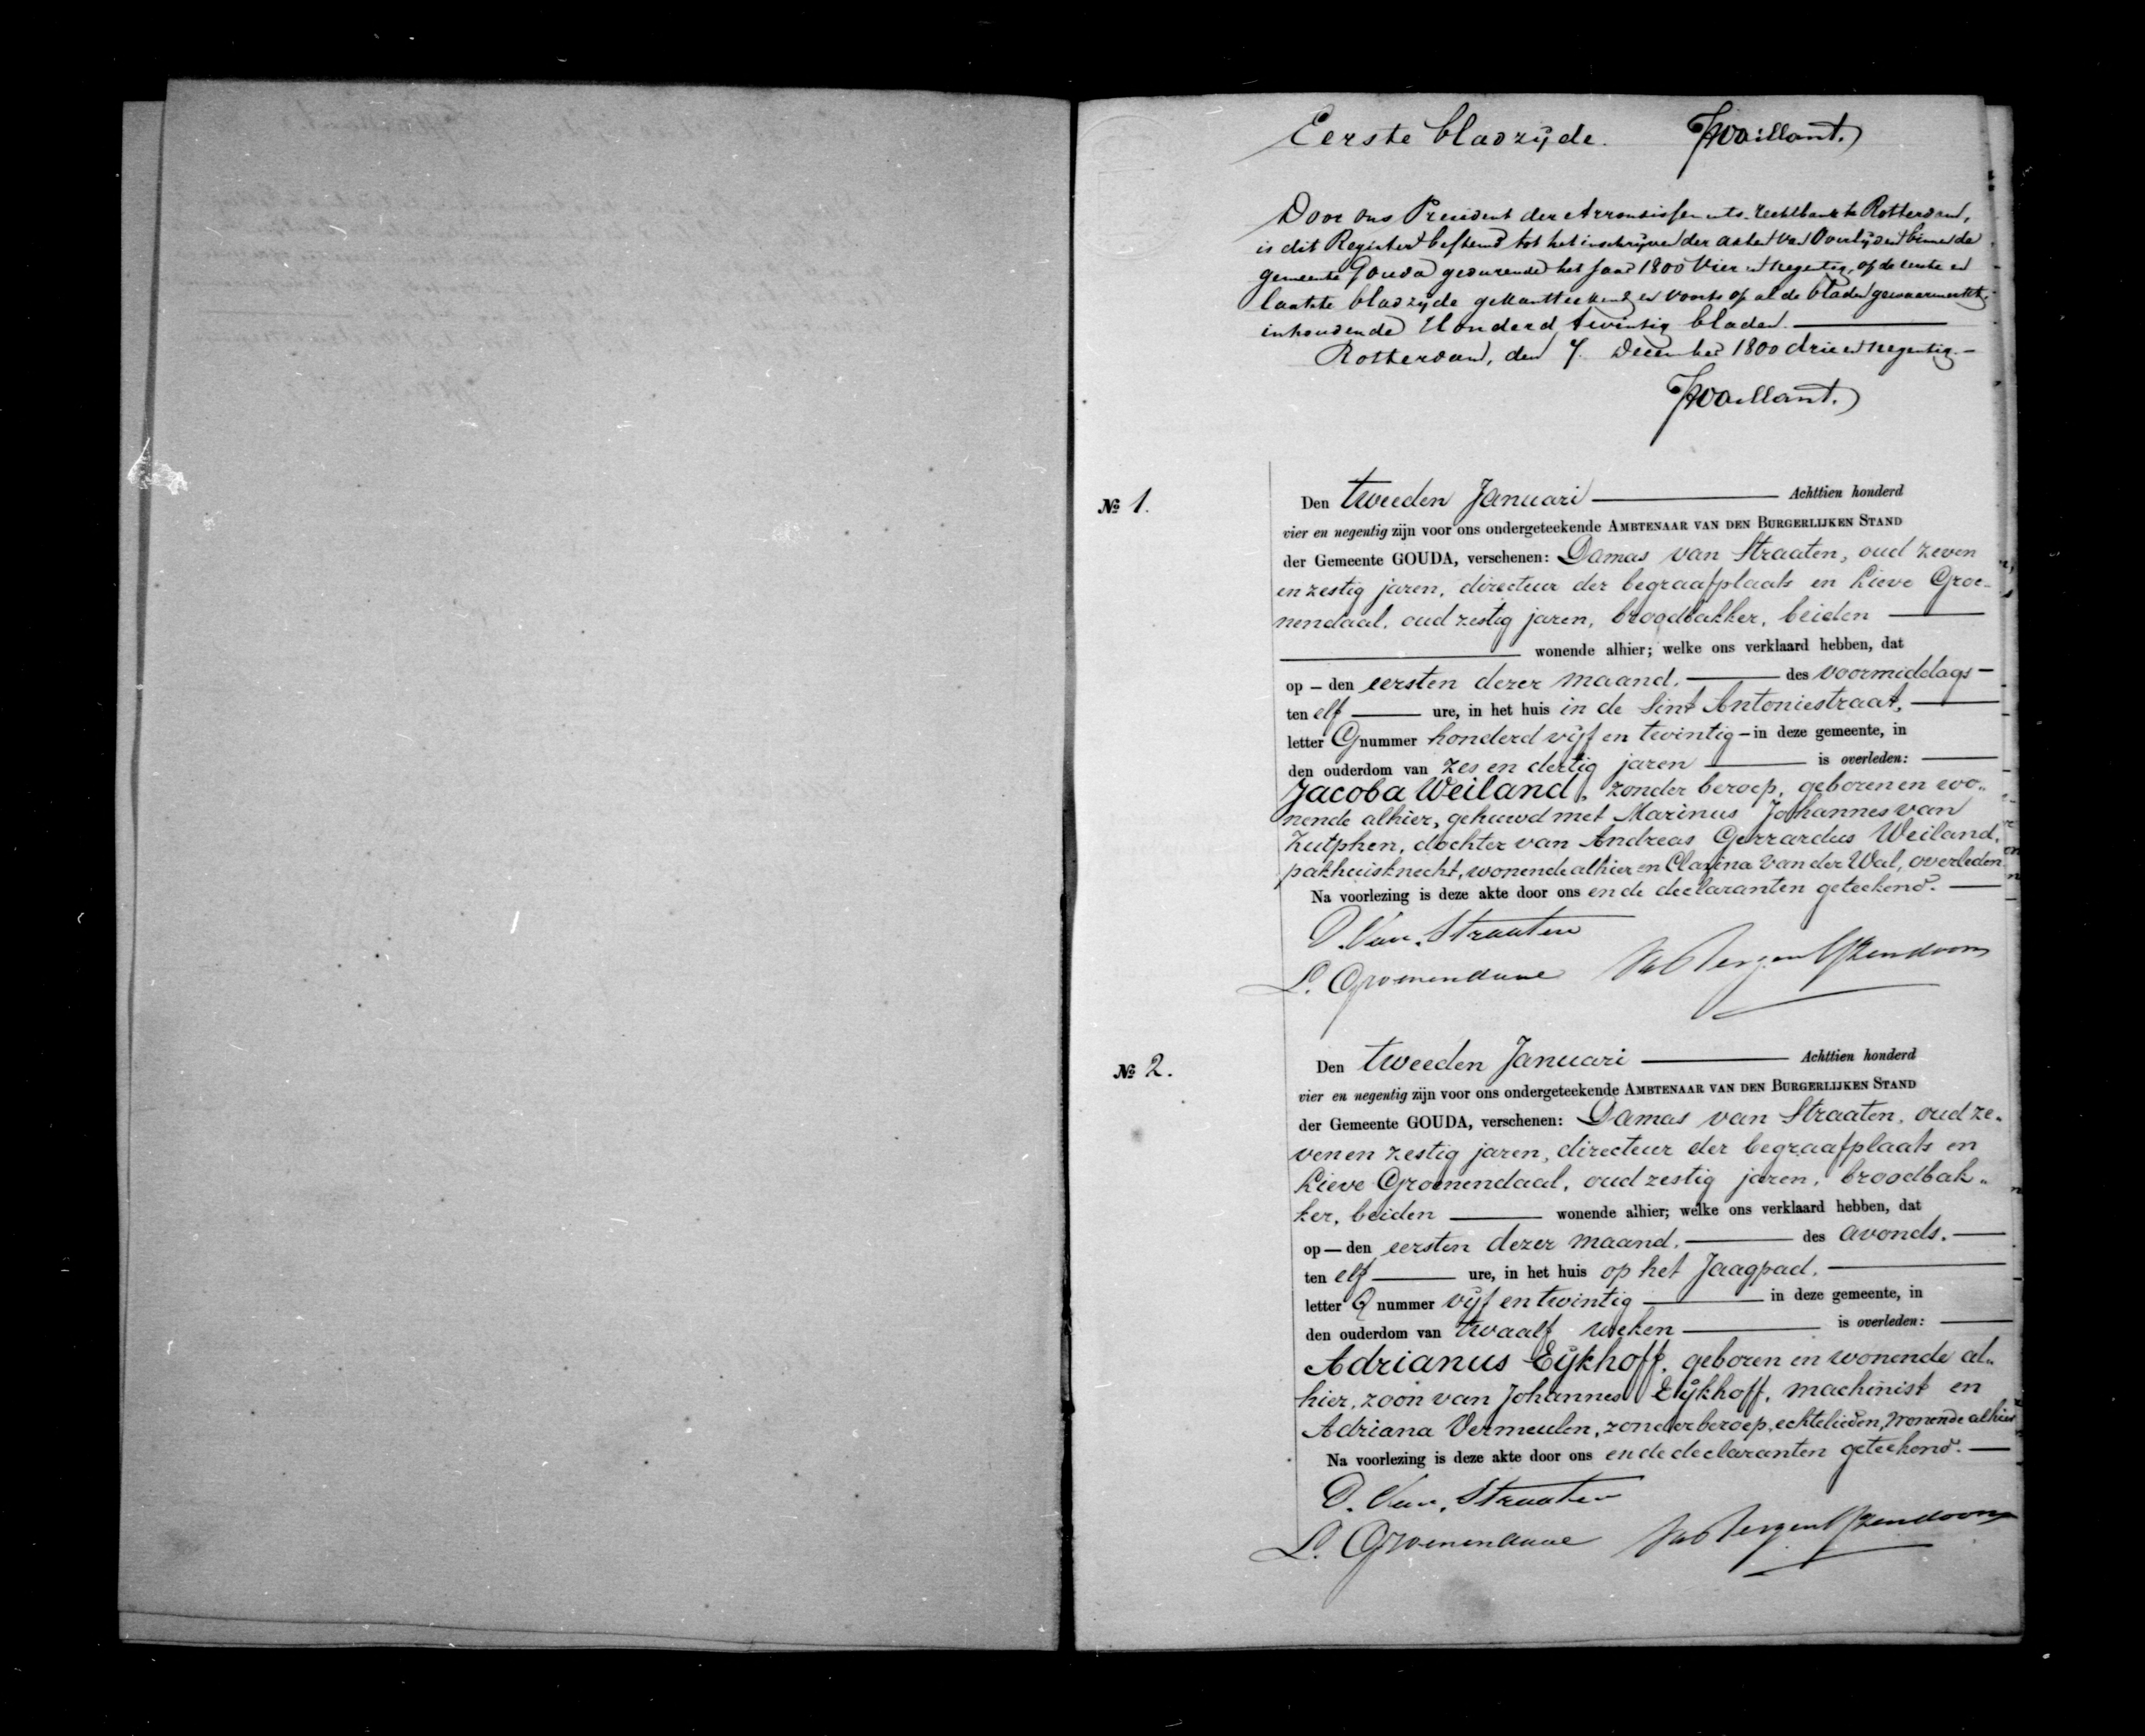 Eerste bladzijde. JWaillant.
Door ons President der Arrondissements-rechtbank te Rotterdam,
is dit Register bestemd tot het inschrijven der akten van Overlijden binnen de
gemeente Gouda gedurende het jaar 1800 Vier en Negentig, op de eerste en
laatste bladzijde gekantteekend en voorts op al de bladen gewaarmerkt,
inhoudende Honderd twintig bladen.
Rotterdam, den 7. December 1800 drie en negentig.
JWaillant.
№ 1.
Den tweeden Januari Achttien honderd
vier en negentig zijn voor ons ondergeteekende AMBTENAAR VAN DEN BURGERLIJKEN STAND
der Gemeente GOUDA, verschenen: Damas van Straaten, oud zeven
en zestig jaren, directeur der begraafplaats en Lieve Groe-
nendaal, oud zestig jaren, broodbakker, beiden
wonende alhier; welke ons verklaard hebben, dat
op – den eersten dezer maand. des voormiddags –
ten elf ure, in het huis in de Sint Antoniestraat,
letter G nummer honderd vijf en twintig – in deze gemeente, in
den ouderdom van zes en dertig jaren is overleden:
Jacoba Weiland, zonder beroep, geboren en wo„
nende alhier, gehuwd met Marinus Johannes van
Zutphen, dochter van Andreas Gerrardus Weiland,
pakhuisknecht, wonende alhier en Clasina van der Wal, overleden
Na voorlezing is deze akte door ons en de declaranten geteekend.
D. Van. Straaten
L. Groenendaal IJzendoorn
№ 2.
Den tweeden Januari Achttien honderd
vier en negentig zijn voor ons ondergeteekende AMBTENAAR VAN DEN BURGERLIJKEN STAND
der Gemeente GOUDA, verschenen: Damas van Straaten, oud ze„
ven en zestig jaren, directeur der begraafplaats en
Lieve Groenendaal, oud zestig jaren, broodbak„
ker, beiden wonende alhier; welke ons verklaard hebben, dat
op — den eersten dezer maand. des avonds.
ten elf ure, in het huis op het Jaagpad.
letter Q nummer vijf en twintig in deze gemeente, in
den ouderdom van twaalf weken is overleden:
Adrianus Eijkhoff, geboren en wonende al„
hier, zoon van Johannes Eijkhoff, machinist en
Adriana Vermeulen, zonder beroep, echtelieden, wonende alhier
Na voorlezing is deze akte door ons en de declaranten geteekend.
D. Van. Straaten
L. Groenendaal IJzendoorn